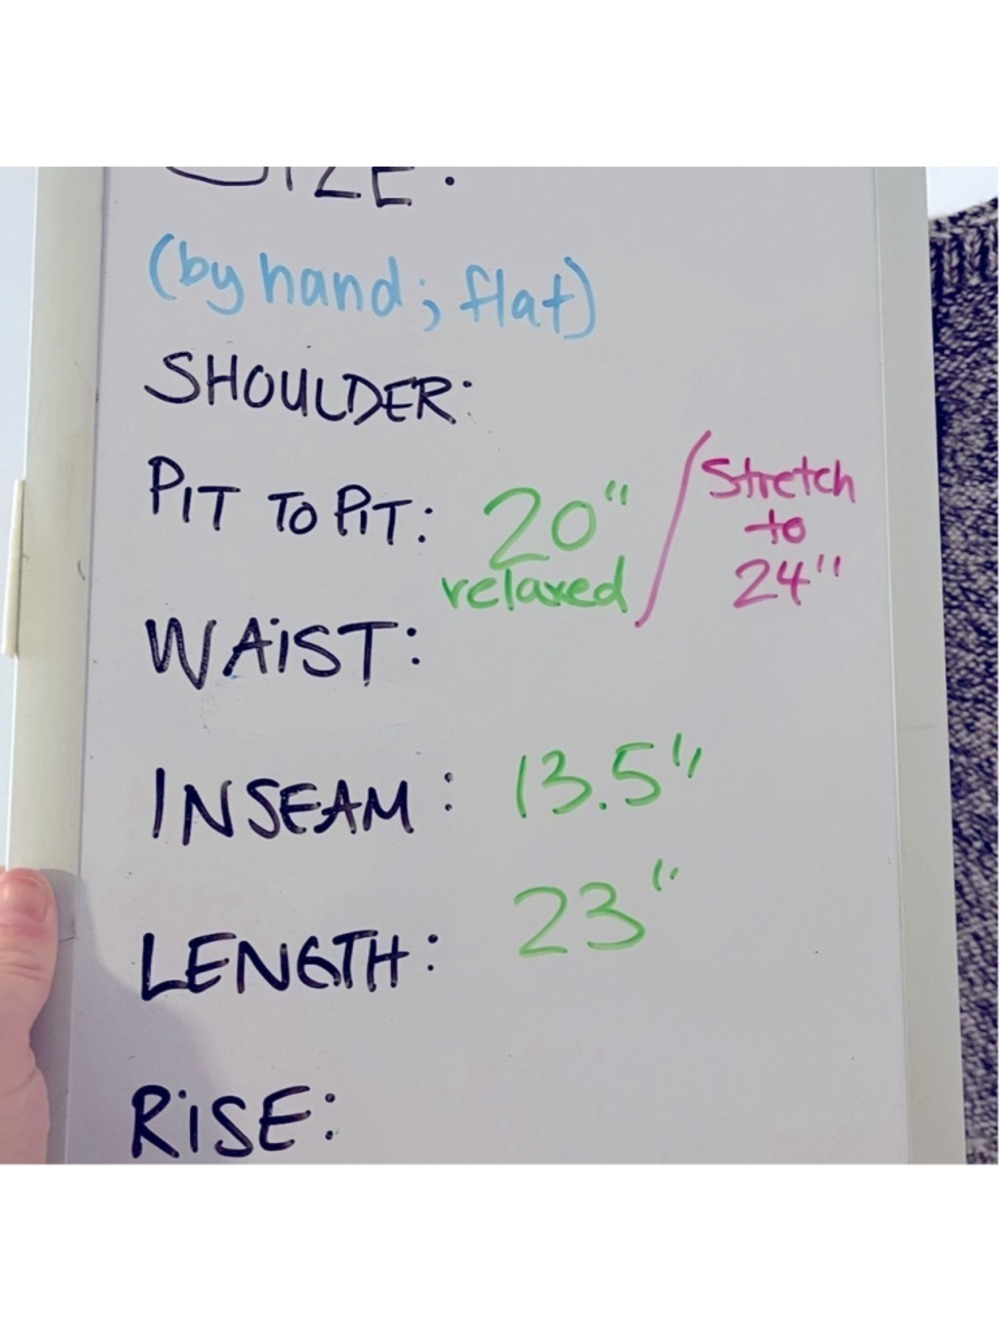 SIZE:
(by hand; flat)
SHOULDER:
PIT TO PIT: 20" relaxed / Stretch to 24"
WAIST:
INSEAM: 13.5"
LENGTH: 23"
RISE: